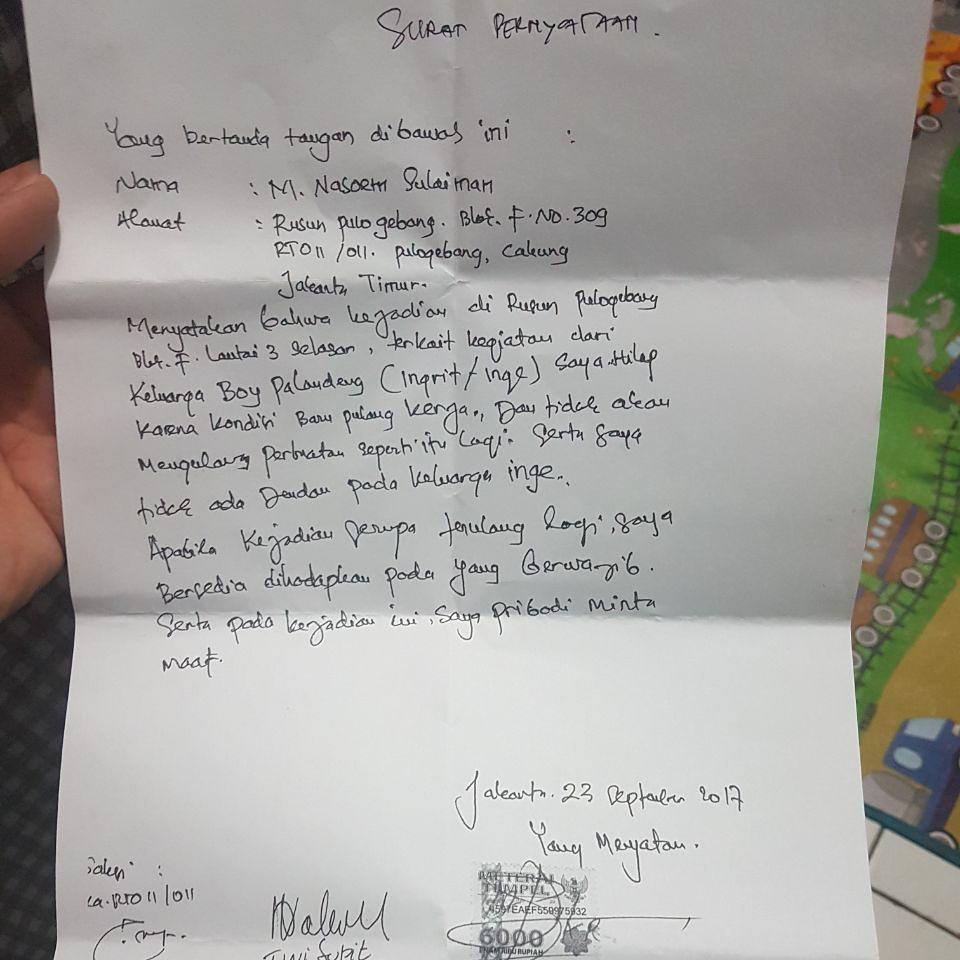 SURAT PERNYATAAN.
Yang bertanda tangan dibawah ini :
Nama : M. Nasoem Sulaiman
Alamat : Rusun pulo gebang. Blok. F. NO. 309
RT011/011. pulogebang, Cakung
Jakarta Timur.
Menyatakan bahwa kejadian di Rusun Pulogebang
Blok. F. Lantai 3 selasan, terkait kegiatan dari
Keluarga Boy Palandeng (Ingrit/inge) saya Hilap
Karna kondisi Baru pulang kerga., Dan tidak akan
Mengulang perbuatan seperti itu lagi. Serta saya
tidak ada Dendam pada keluarga inge..
Apabila kejadian serupa terulang lagi, saya
Bersedia dihadapkan pada yang berwajib.
Serta pada kejadian ini, saya pribadi minta
maaf.
Jakarta. 23 September 2017
Yang Meyatan.
saksi :
RT011/011
METERAI
TEMPEL
6000
ENAM RIBU RUPIAH